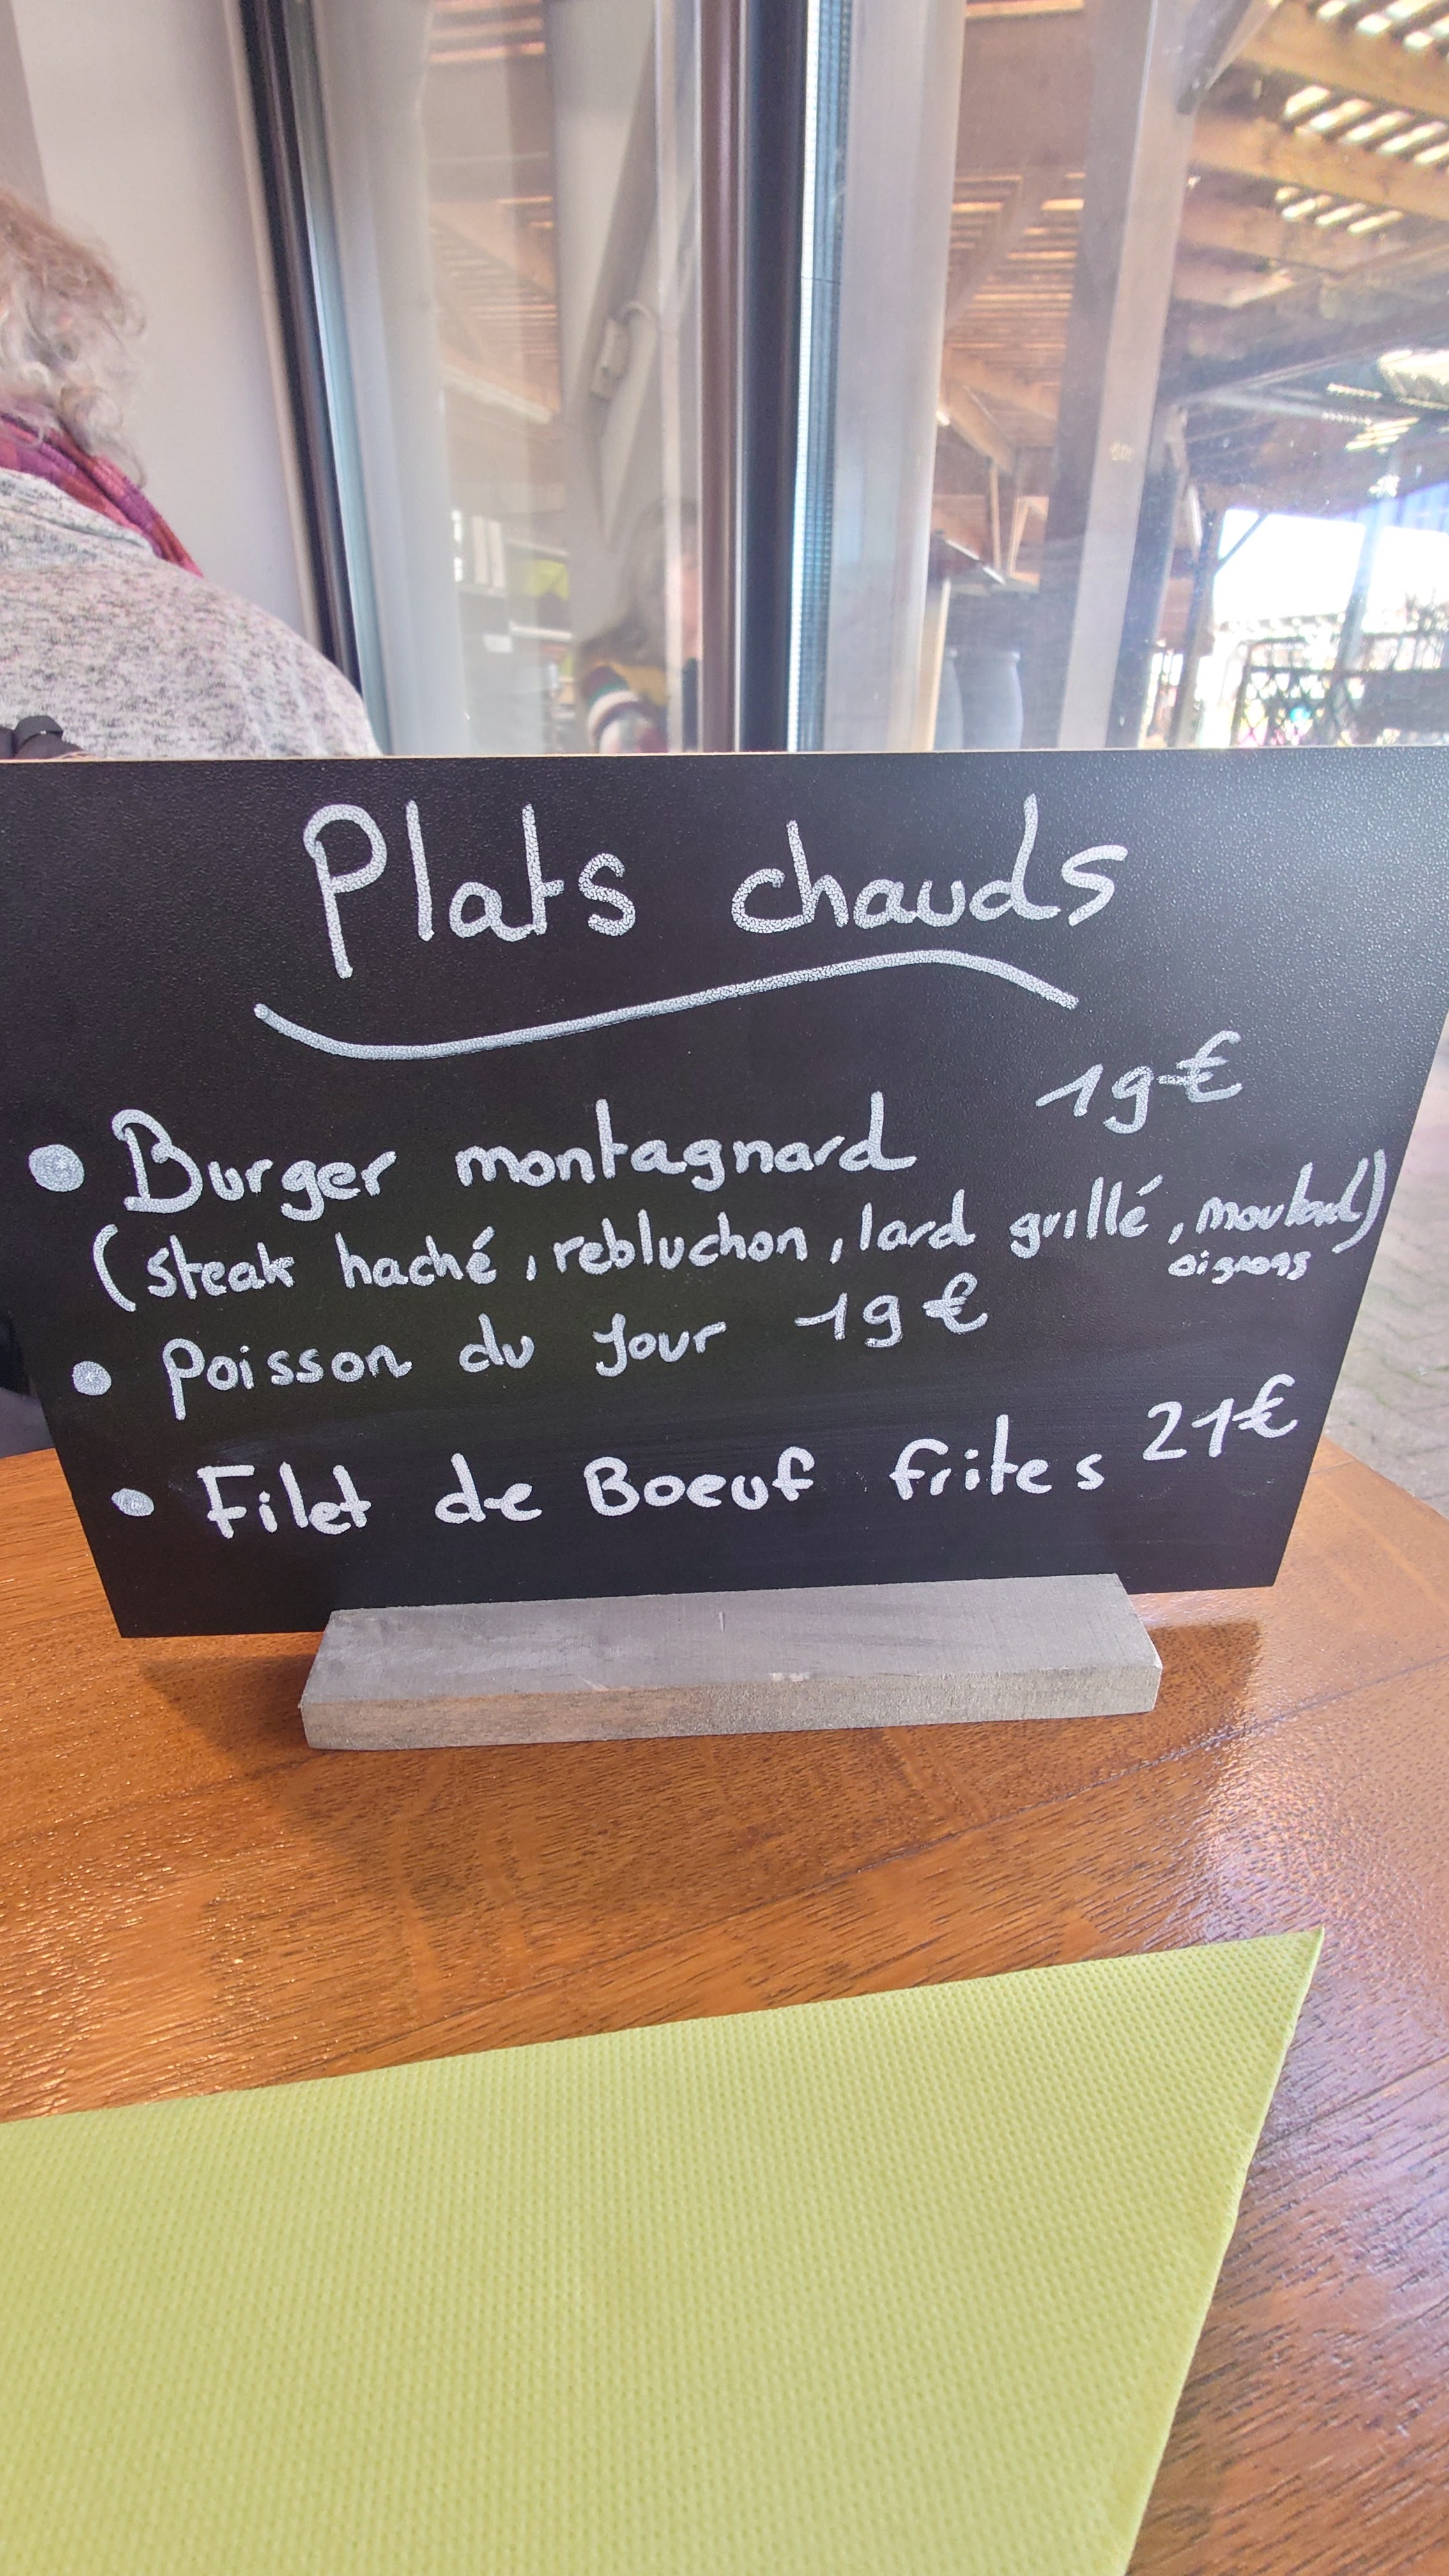 Plats chauds
• Burger montagnard 19€
(steak haché, rebluchon, lard grillé,
oignons
• Poisson du jour 19€
• Filet de Boeuf frites 21€